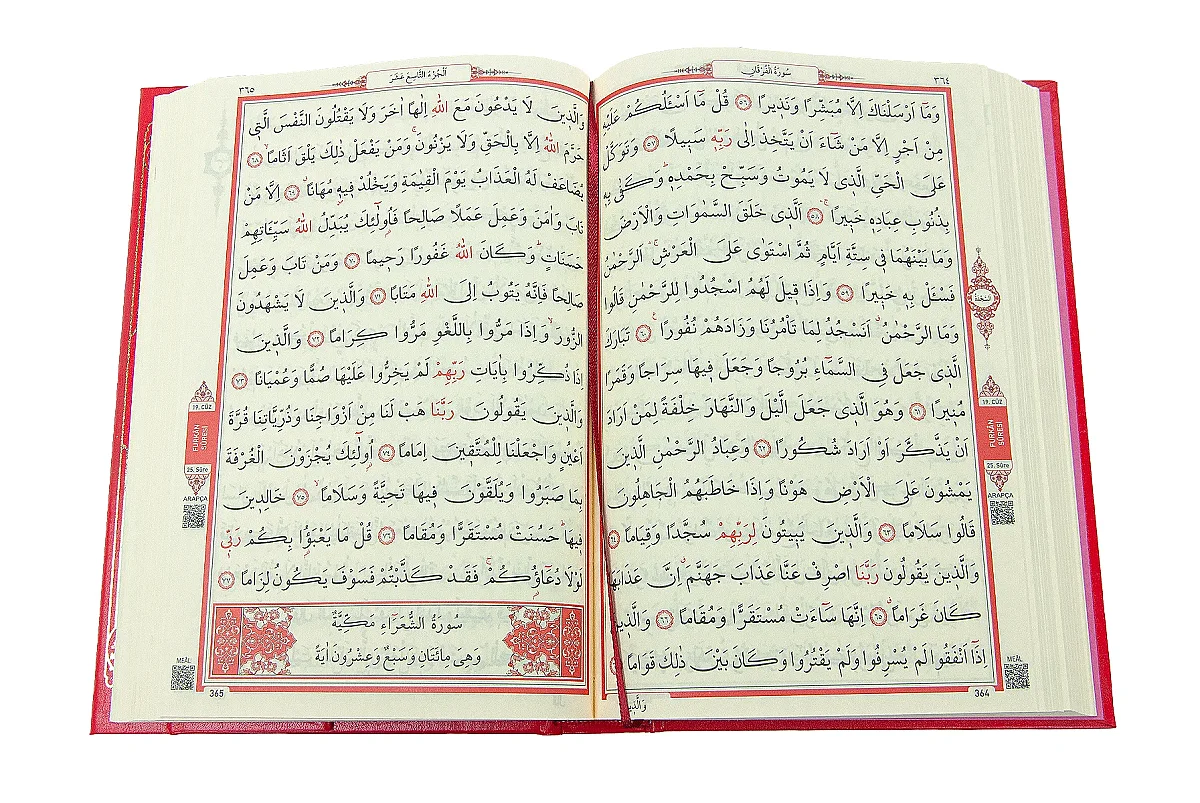 سُورَةُ الْفُرْقَانِ
٣٦٤
وَمَٓا اَرْسَلْنَاكَ اِلَّا مُبَشِّرًا وَنَذ۪يرًا ﴿٥٦﴾ قُلْ مَٓا اَسْـَٔلُكُمْ عَلَيْهِ
مِنْ اَجْرٍ اِلَّا مَنْ شَٓاءَ اَنْ يَتَّخِذَ اِلٰى رَبِّه۪ سَب۪يلًا ﴿٥٧﴾ وَتَوَكَّلْ
عَلَى الْحَيِّ الَّذ۪ي لَا يَمُوتُ وَسَبِّحْ بِحَمْدِه۪ۜ وَكَفٰى بِه۪
بِذُنُوبِ عِبَادِه۪ خَب۪يرًاۚ ﴿٥٨﴾ اَلَّذ۪ي خَلَقَ السَّمٰوَاتِ وَالْاَرْضَ
وَمَا بَيْنَهُمَا ف۪ي سِتَّةِ اَيَّامٍ ثُمَّ اسْتَوٰى عَلَى الْعَرْشِۚ اَلرَّحْمٰنُ
فَسْـَٔلْ بِه۪ خَب۪يرًا ﴿٥٩﴾ وَاِذَا ق۪يلَ لَهُمُ اسْجُدُوا لِلرَّحْمٰنِ قَالُوا
وَمَا الرَّحْمٰنُۗ اَنَسْجُدُ لِمَا تَأْمُرُنَا وَزَادَهُمْ نُفُورًا ﴿٦٠﴾ تَبَارَكَ
الَّذ۪ي جَعَلَ فِي السَّمَٓاءِ بُرُوجًا وَجَعَلَ ف۪يهَا سِرَاجًا وَقَمَرًا
مُن۪يرًا ﴿٦١﴾ وَهُوَ الَّذ۪ي جَعَلَ الَّيْلَ وَالنَّهَارَ خِلْفَةً لِمَنْ اَرَادَ
اَنْ يَذَّكَّرَ اَوْ اَرَادَ شُكُورًا ﴿٦٢﴾ وَعِبَادُ الرَّحْمٰنِ الَّذ۪ينَ
يَمْشُونَ عَلَى الْاَرْضِ هَوْنًا وَاِذَا خَاطَبَهُمُ الْجَاهِلُونَ
قَالُوا سَلَامًا ﴿٦٣﴾ وَالَّذ۪ينَ يَب۪يتُونَ لِرَبِّهِمْ سُجَّدًا وَقِيَامًا ﴿٦٤﴾
وَالَّذ۪ينَ يَقُولُونَ رَبَّنَا اصْرِفْ عَنَّا عَذَابَ جَهَنَّمَۗ اِنَّ عَذَابَهَا
كَانَ غَرَامًاۗ ﴿٦٥﴾ اِنَّهَا سَٓاءَتْ مُسْتَقَرًّا وَمُقَامًا ﴿٦٦﴾ وَالَّذ۪ينَ
اِذَٓا اَنْفَقُوا لَمْ يُسْرِفُوا وَلَمْ يَقْتُرُوا وَكَانَ بَيْنَ ذٰلِكَ قَوَامًا
السَّجْدَةُ
19. CÜZ
FURKÂN
SÛRESİ
25. Sûre
ARAPÇA
MEÂL
364
اَلْجُزْءُ التَّاسِعَ عَشَرَ
٣٦٥
وَالَّذ۪ينَ لَا يَدْعُونَ مَعَ اللّٰهِ اِلٰهًا اٰخَرَ وَلَا يَقْتُلُونَ النَّفْسَ الَّت۪ي
حَرَّمَ اللّٰهُ اِلَّا بِالْحَقِّ وَلَا يَزْنُونَۚ وَمَنْ يَفْعَلْ ذٰلِكَ يَلْقَ اَثَامًاۙ ﴿٦٨﴾
يُضَاعَفْ لَهُ الْعَذَابُ يَوْمَ الْقِيٰمَةِ وَيَخْلُدْ ف۪يه۪ مُهَانًاۗ ﴿٦٩﴾ اِلَّا مَنْ
تَابَ وَاٰمَنَ وَعَمِلَ عَمَلًا صَالِحًا فَاُو۬لٰٓئِكَ يُبَدِّلُ اللّٰهُ سَيِّـَٔاتِهِمْ
حَسَنَاتٍۜ وَكَانَ اللّٰهُ غَفُورًا رَح۪يمًا ﴿٧٠﴾ وَمَنْ تَابَ وَعَمِلَ
صَالِحًا فَاِنَّهُ يَتُوبُ اِلَى اللّٰهِ مَتَابًا ﴿٧١﴾ وَالَّذ۪ينَ لَا يَشْهَدُونَ
الزُّورَۙ وَاِذَا مَرُّوا بِاللَّغْوِ مَرُّوا كِرَامًا ﴿٧٢﴾ وَالَّذ۪ينَ
اِذَا ذُكِّرُوا بِاٰيَاتِ رَبِّهِمْ لَمْ يَخِرُّوا عَلَيْهَا صُمًّا وَعُمْيَانًا ﴿٧٣﴾
وَالَّذ۪ينَ يَقُولُونَ رَبَّنَا هَبْ لَنَا مِنْ اَزْوَاجِنَا وَذُرِّيَّاتِنَا قُرَّةَ
اَعْيُنٍ وَاجْعَلْنَا لِلْمُتَّق۪ينَ اِمَامًا ﴿٧٤﴾ اُو۬لٰٓئِكَ يُجْزَوْنَ الْغُرْفَةَ
بِمَا صَبَرُوا وَيُلَقَّوْنَ ف۪يهَا تَحِيَّةً وَسَلَامًاۙ ﴿٧٥﴾ خَالِد۪ينَ
ف۪يهَاۜ حَسُنَتْ مُسْتَقَرًّا وَمُقَامًا ﴿٧٦﴾ قُلْ مَا يَعْبَؤُ۬ا بِكُمْ رَبّ۪ي
لَوْلَا دُعَٓاؤُ۬كُمْۚ فَقَدْ كَذَّبْتُمْ فَسَوْفَ يَكُونُ لِزَامًا ﴿٧٧﴾
سُورَةُ الشُّعَرَٓاءِ مَكِّيَّةٌ
وَهِيَ مِائَتَانِ وَسَبْعٌ وَعِشْرُونَ اٰيَةً
19. CÜZ
FURKÂN
SÛRESİ
25. Sûre
ARAPÇA
MEÂL
365